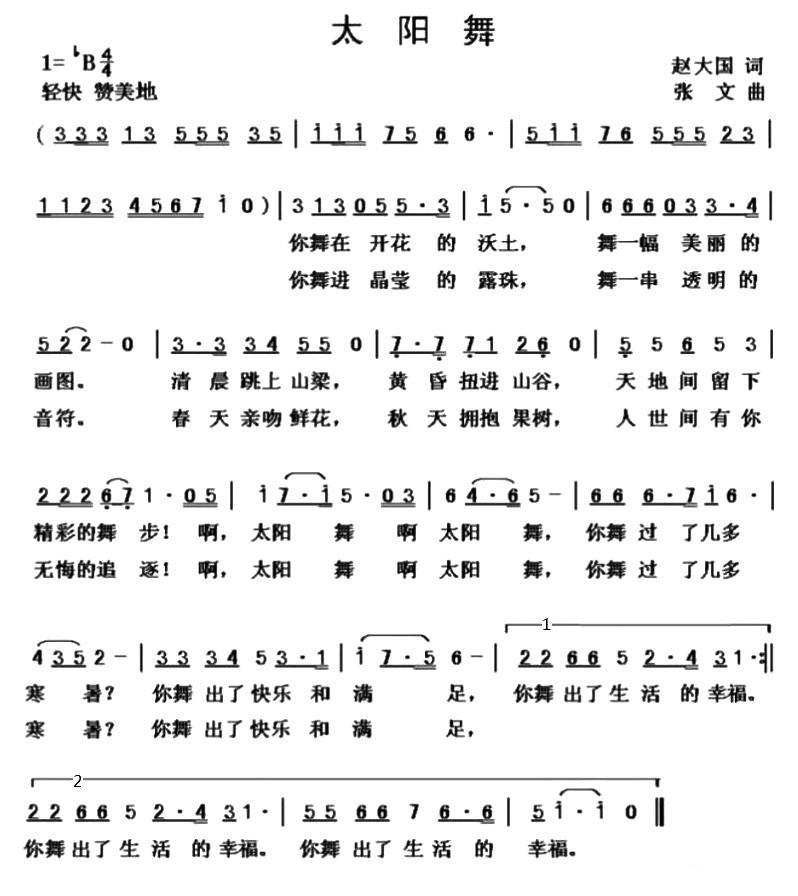 太 阳 舞
1= ♭B 4/4
赵大国 词
轻快 赞美地
张 文 曲
( 3 3 3 1 3 5 5 5 3 5 | i i i 7 5 6 6 · | 5 i i 7 6 5 5 5 2 3 |
1 1 2 3 4 5 6 7 i 0 ) | 3 1 3 0 5 5 · 3 | i 5 · 5 0 | 6 6 6 0 3 3 · 4 |
你舞在 开花 的 沃土， 舞一幅 美丽 的
你舞进 晶莹 的 露珠， 舞一串 透明 的
5 2 2 - 0 | 3 · 3 3 4 5 5 0 | 7 · 7 7 1 2 6 0 | 5 5 6 5 3 |
画图。 清 晨 跳上 山梁， 黄 昏 扭进 山谷， 天 地 间 留 下
音符。 春 天 亲吻 鲜花， 秋 天 拥抱 果树， 人 世 间 有 你
2 2 2 6 7 1 · 0 5 | i 7 · i 5 · 0 3 | 6 4 · 6 5 - | 6 6 6 · 7 i 6 · |
精彩的舞 步！ 啊， 太阳 舞 啊 太阳 舞， 你舞 过 了几多
无悔的追 逐！ 啊， 太阳 舞 啊 太阳 舞， 你舞 过 了几多
1
4 3 5 2 - | 3 3 3 4 5 3 · 1 | i 7 · 5 6 - | 2 2 6 6 5 2 · 4 3 1 · :||
寒 暑？ 你舞 出了 快乐 和 满 足， 你舞 出了 生 活 的 幸福。
寒 暑？ 你舞 出了 快乐 和 满 足，
2
2 2 6 6 5 2 · 4 3 1 · | 5 5 6 6 7 6 · 6 | 5 i · i 0 ||
你舞 出了 生 活 的 幸福。 你舞 出了 生 活 的 幸福。